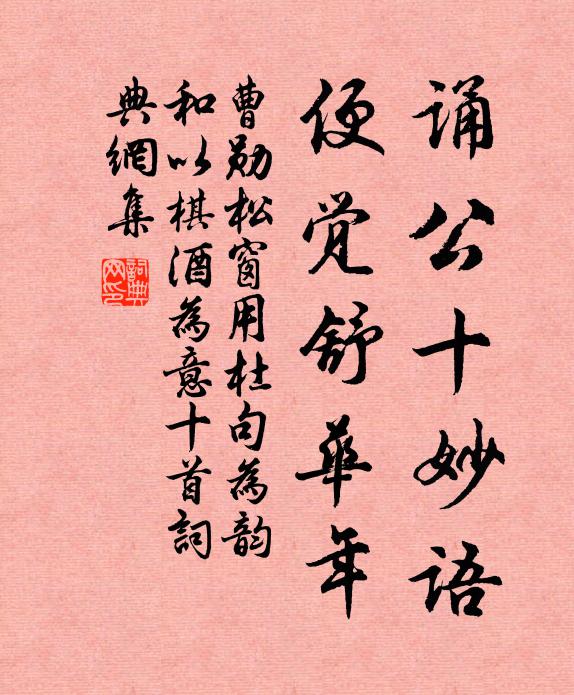 诵公十妙语
便觉舒华年
曹勋松窗用杜句為韵
和以棋酒為意十首詞
典網集
詞典
网印